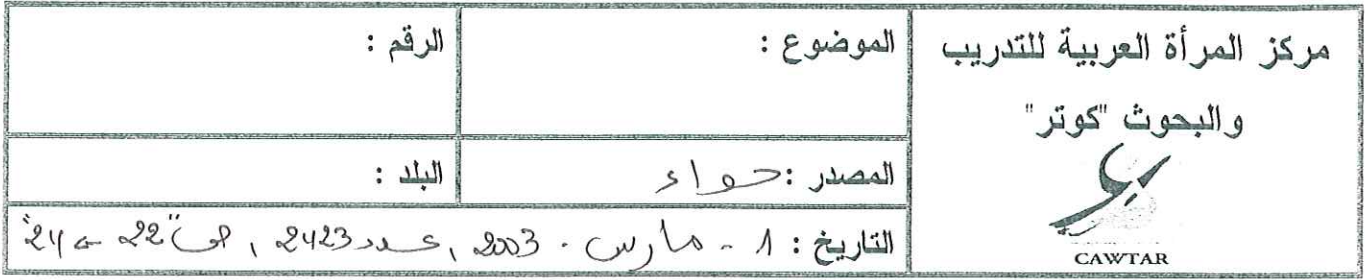 مركز المرأة العربية للتدريب
والبحوث "كوتر"
CAWTAR
الموضوع :
الرقم :
المصدر : حواء
البلد :
التاريخ : 1 - مارس . 2003 ، عدد 2423 ، ص 22